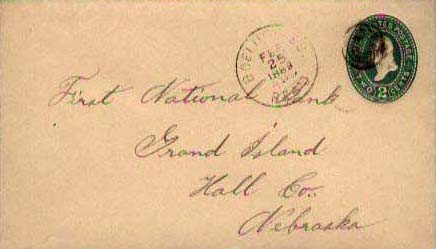 FEB
25
1889
POSTAGE
TWO CENTS
2
First National Bank
Grand Island
Hall Co.
Nebraska